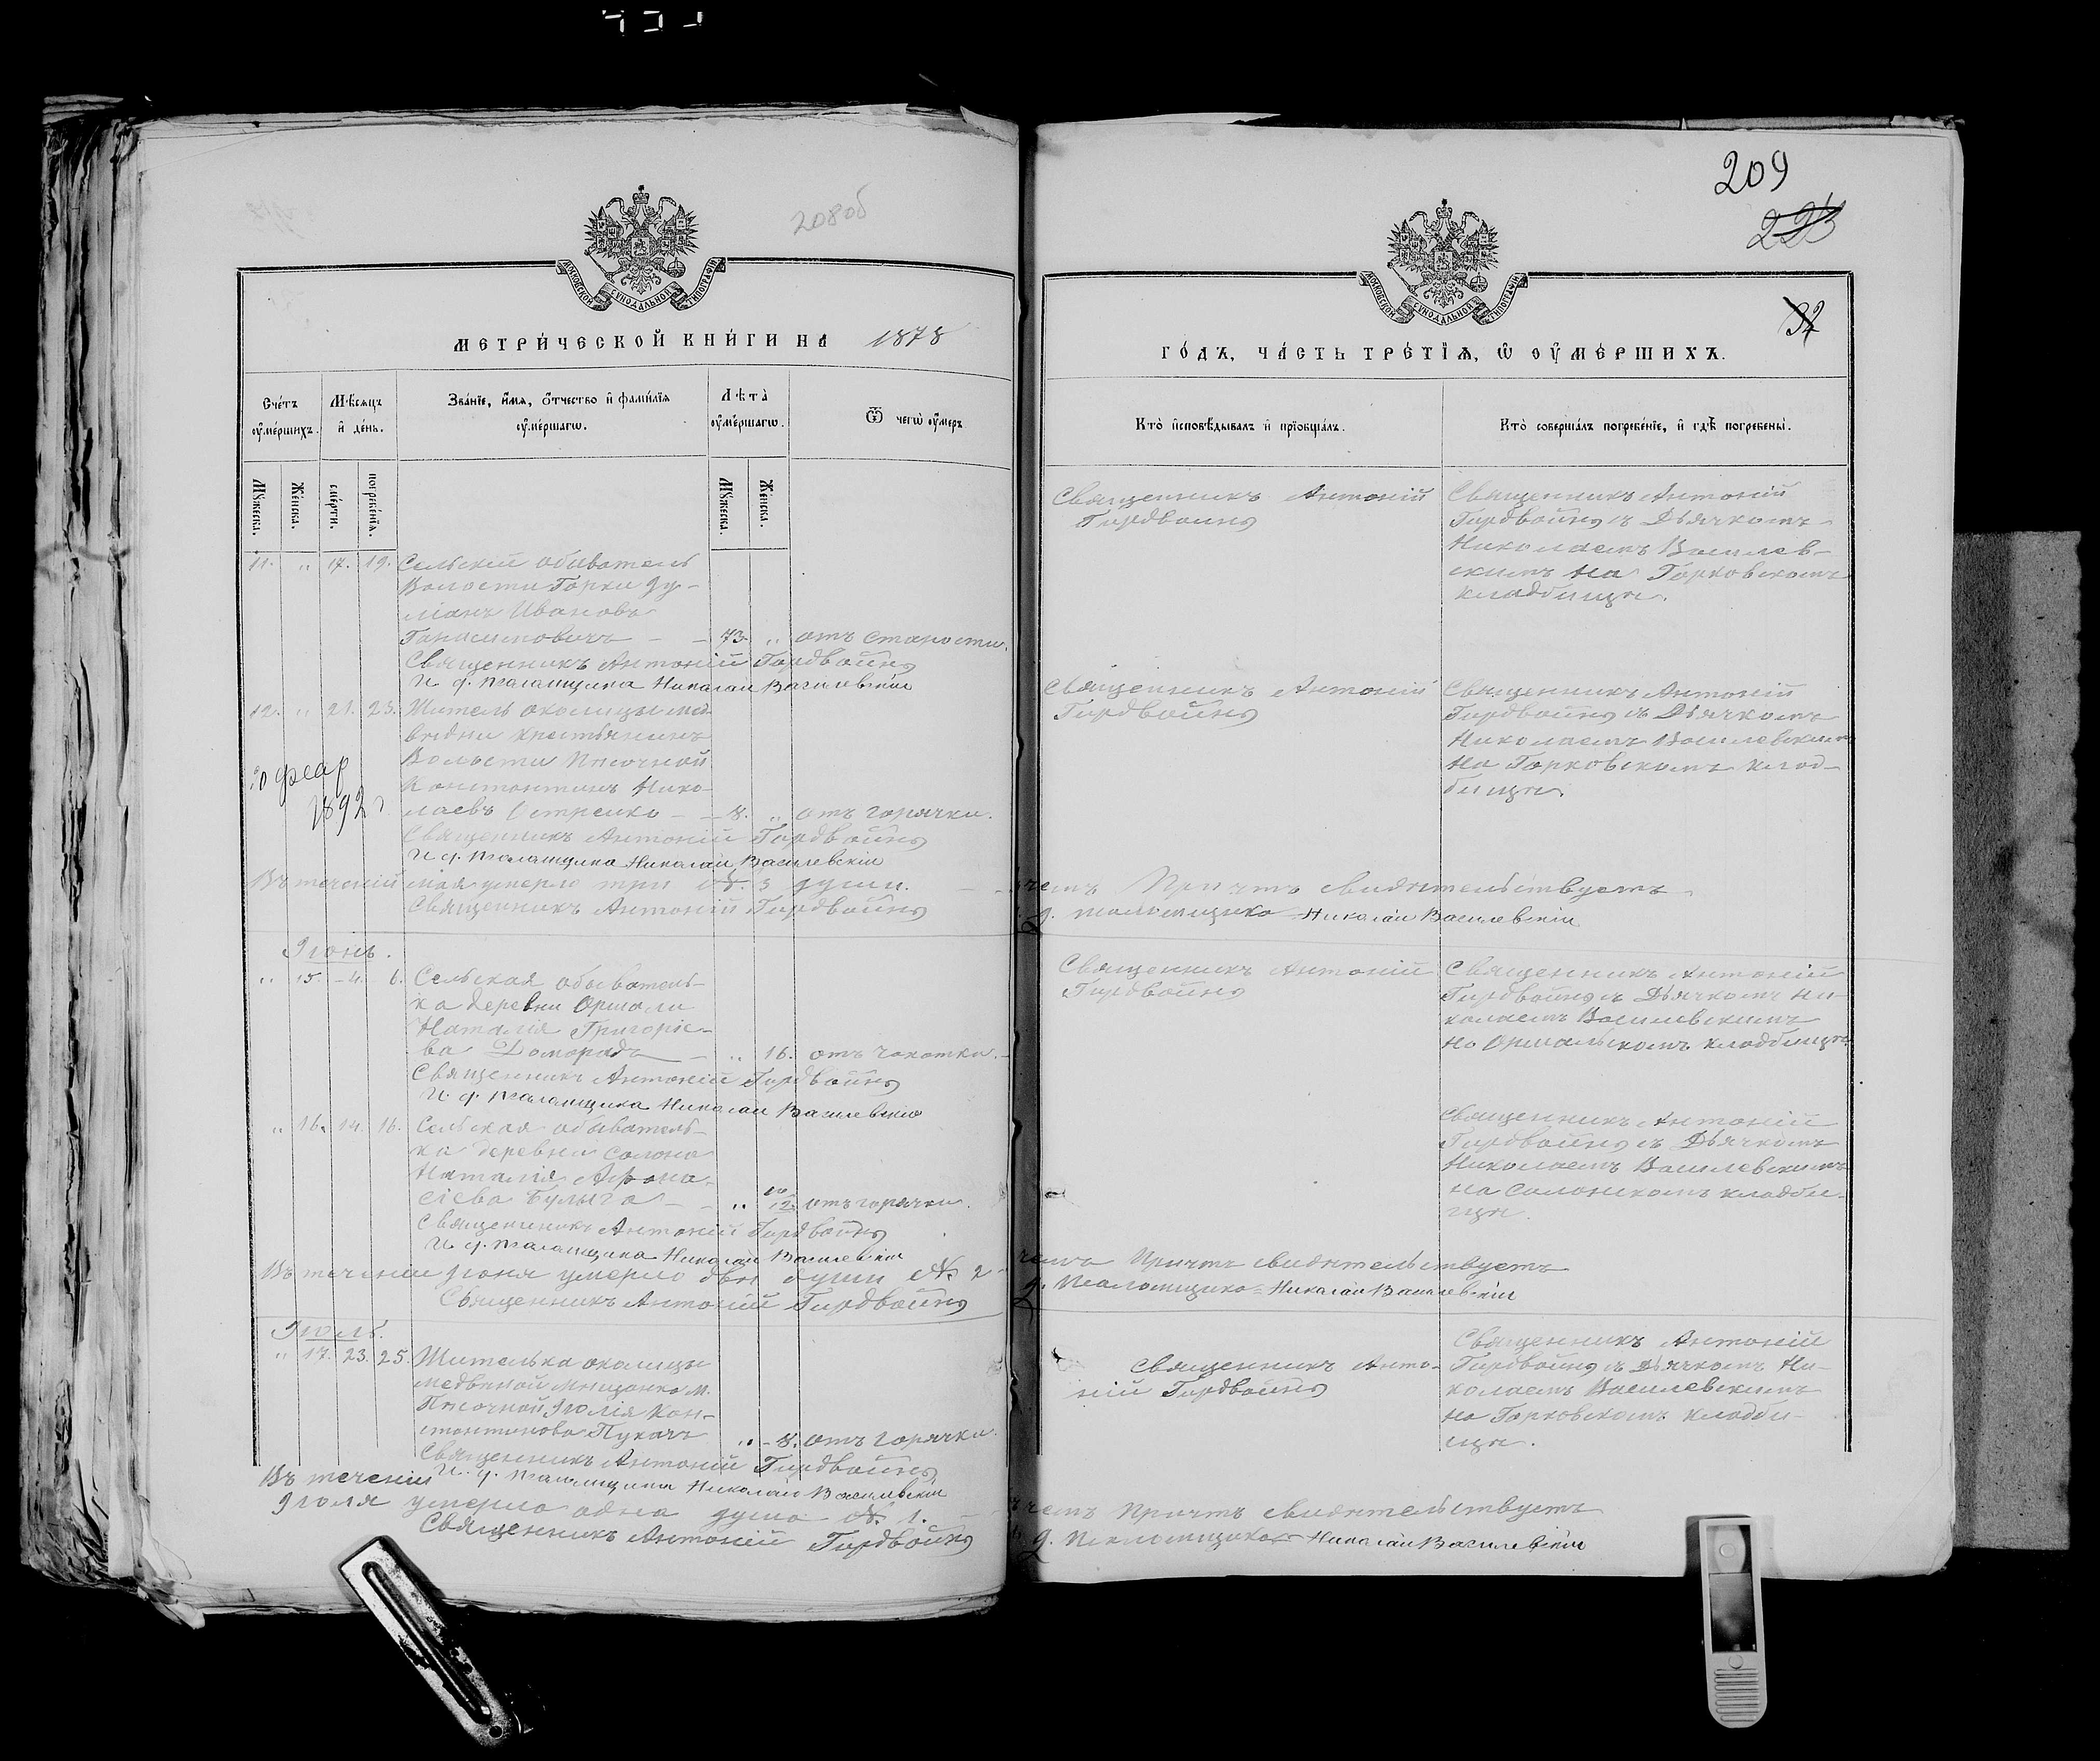 208об
МЕТРИЧЕСКОЙ КНИГИ НА 1878
Счетъ умершихъ.
Мѣсяцъ и день.
Званіе, имя, отчество и фамилія умершаго.
Лѣта умершаго.
Ѿ чегѡ умеръ
Мужеска.
Женска.
смерти.
погребенія.
Мужеска.
Женска.
11. „ 17. 19. Сельскій обыватель
Волости Горки
Ивановъ
73. „ отъ старости.
Священникъ Антоній Гирдвойнъ
И. д. псаломщика Николай Василевскій
12. „ 21. 23. Житель околицы Мед-
вѣдни крестьянинъ
Волости Пѣсочной
Константинъ Нико-
лаевъ Остренко – 8. „ отъ горячки.
1892 г
Священникъ Антоній Гирдвойнъ
И. д. псаломщика Николай Василевскій
Въ теченіи мая умерло три №. 3 души.
Священникъ Антоній Гирдвойнъ
Іюнь.
„ 15. 4. 6. Сельская обыватель-
ка деревни Оршали
Наталія Григоріе-
ва Доморадъ – „ 16. отъ чахотки.
Священникъ Антоній Гирдвойнъ
И. д. псаломщика Николай Василевскій
„ 16. 14. 16. Сельская обыватель-
ка деревни Солона
Наталія Афона-
сіева Булыга – „ 12. отъ горячки.
Священникъ Антоній Гирдвойнъ
И. д. псаломщика Николай Василевскій
Въ теченіи Іюня умерло двѣ души №. 2
Священникъ Антоній Гирдвойнъ
Іюль.
„ 17. 23. 25. Жителька околицы
Медвѣдной мѣщанка м.
Пѣсочной, Юлія Кон-
стантинова Пукачъ „ – 8. отъ горячки.
Священникъ Антоній Гирдвойнъ
И. д. псаломщика Николай Василевскій
Въ теченіи
Іюля умерло одна душа №. 1.
Священникъ Антоній Гирдвойнъ
209
223
32
ГОДЪ, ЧАСТЬ ТРЕТІЯ, Ѡ УМЕРШИХЪ.
Кто исповѣдывалъ и пріобщалъ.
Кто совершалъ погребеніе, и гдѣ погребены.
Священникъ Антоній
Гирдвойнъ
Священникъ Антоній
Гирдвойнъ съ Дьячкомъ
Николаемъ Василев-
скимъ на Горковскомъ
кладбищѣ.
Священникъ Антоній
Гирдвойнъ
Священникъ Антоній
Гирдвойнъ съ Дьячкомъ
Николаемъ Василевскимъ
на Горковскомъ клад-
бищѣ.
чемъ Причтъ свидѣтельствуетъ
д. псаломщика Николай Василевскій
Священникъ Антоній
Гирдвойнъ
Священникъ Антоній
Гирдвойнъ съ Дьячкомъ Ни-
колаемъ Василевскимъ
на Оршальскомъ кладбищѣ
Священникъ Антоній
Гирдвойнъ съ Дьячкомъ
Николаемъ Василевскимъ
на Солонскомъ кладби-
щѣ.
чемъ Причтъ свидѣтельствуетъ
д. Псаломщика Николай Василевскій
Священникъ Анто-
ній Гирдвойнъ
Священникъ Антоній
Гирдвойнъ съ Дьячкомъ Ни-
колаемъ Василевскимъ
на Горковскомъ кладби-
щѣ.
чемъ Причтъ свидѣтельствуетъ
д. Псаломщика Николай Василевскій